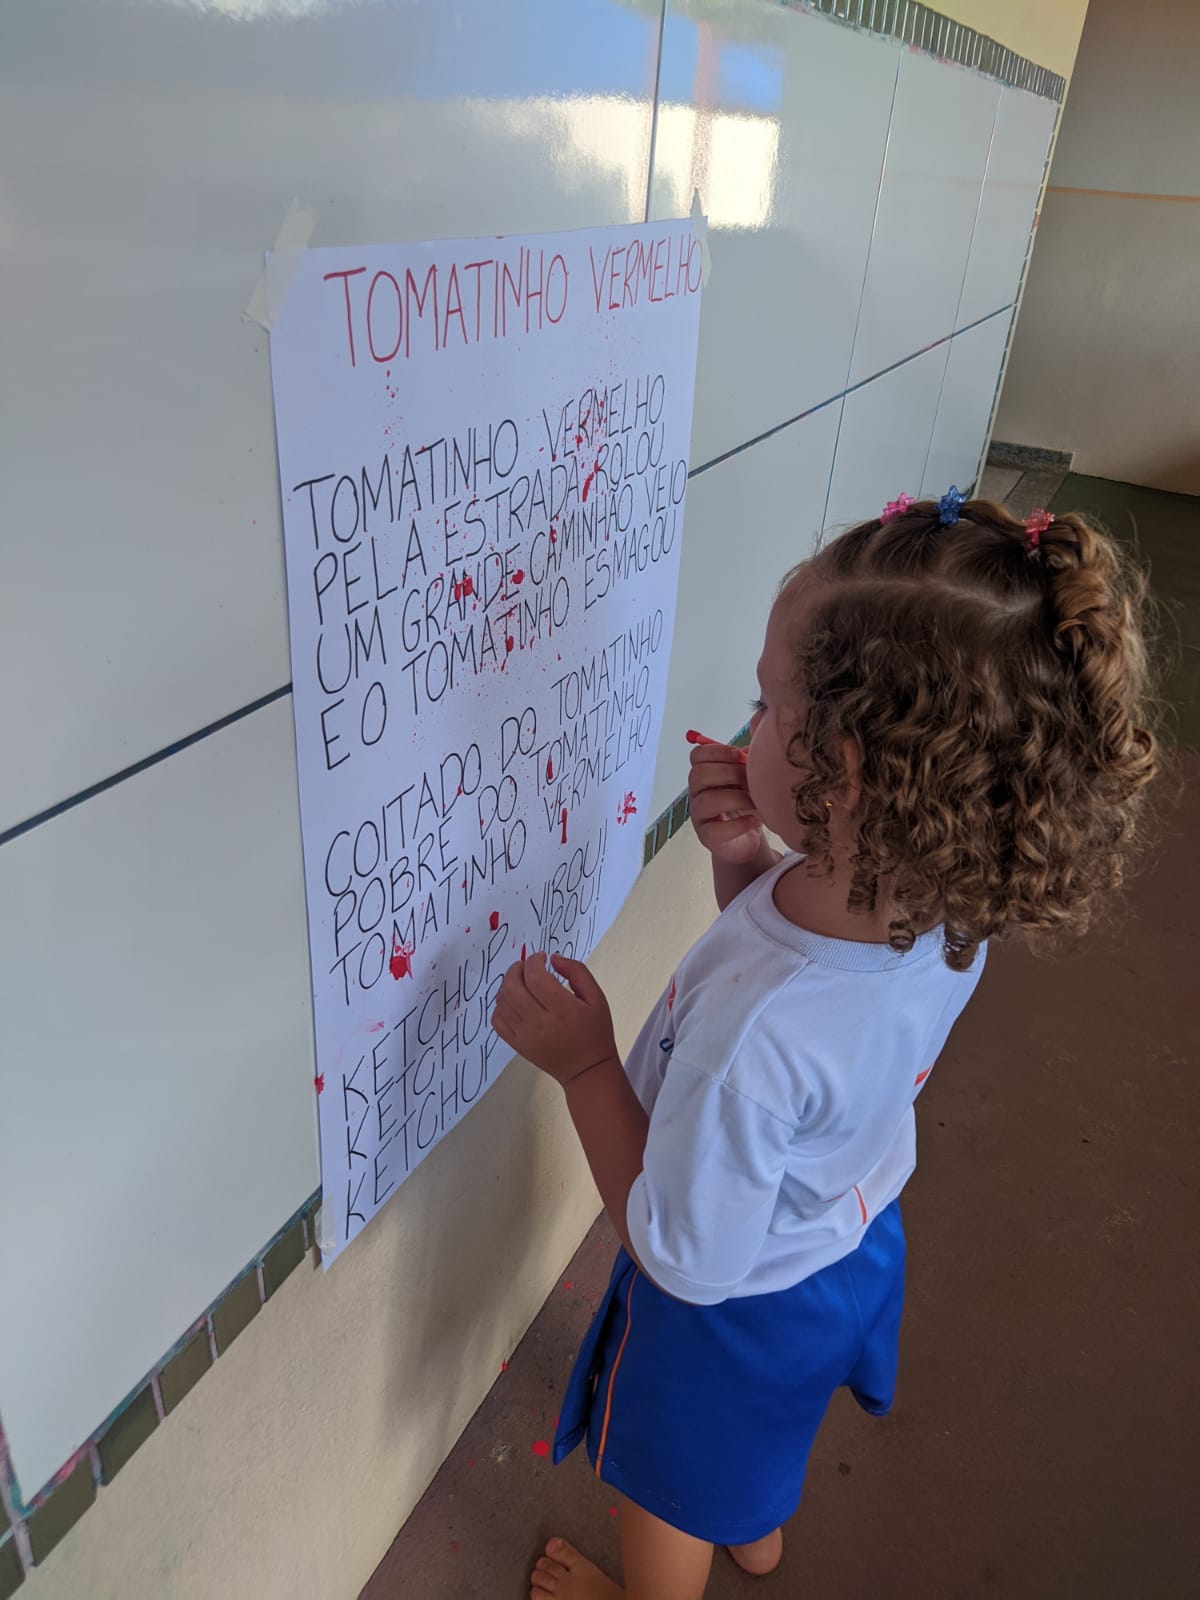 TOMATINHO VERMELHO
TOMATINHO VERMELHO
PELA ESTRADA ROLOU
UM GRANDE CAMINHÃO VEIO
E O TOMATINHO ESMAGOU
COITADO DO TOMATINHO
POBRE DO TOMATINHO
TOMATINHO VERMELHO
KETCHUP VIROU!
KETCHUP VIROU!
KETCHUP